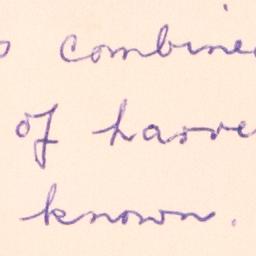 combine
of harve
known.